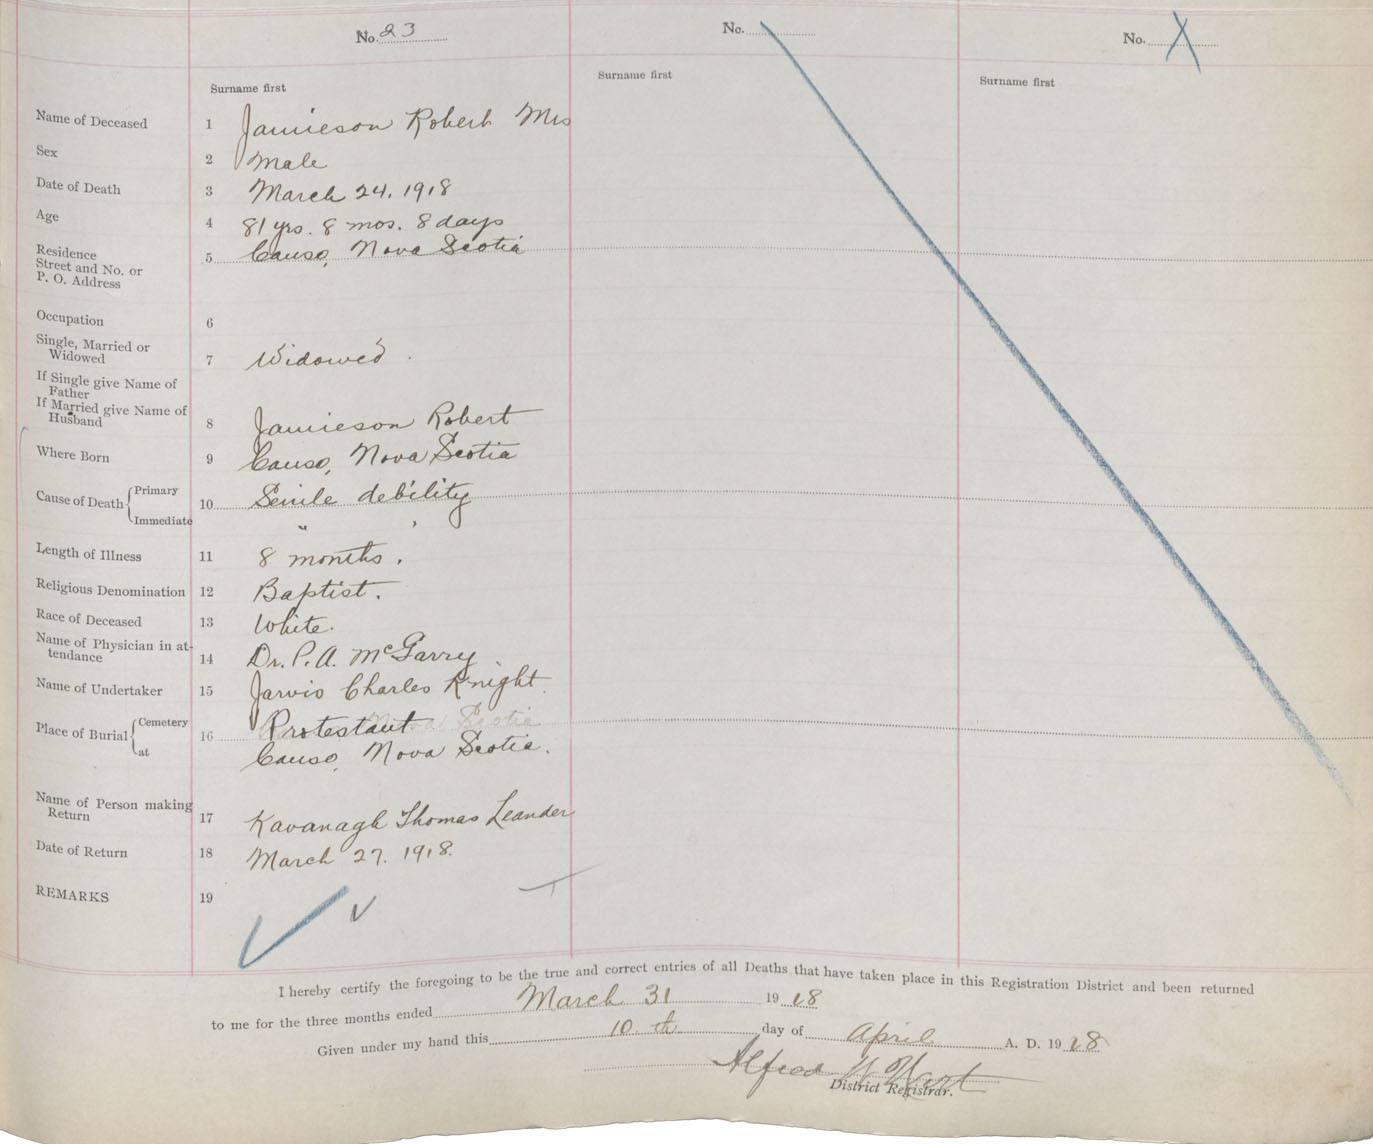 No. 23
No.
No. X
Surname first
Surname first
Surname first
Name of Deceased 1 Jamieson Robert Mrs
Sex 2 Male
Date of Death 3 March 24. 1918
Age 4 81 yrs. 8 mos. 8 days
Residence
Street and No. or
P. O. Address
5 Canso, Nova Scotia
Occupation 6
Single, Married or
Widowed
7 Widowed.
If Single give Name of
Father
If Married give Name of
Husband
8 Jamieson Robert
Where Born 9 Canso, Nova Scotia
Cause of Death { Primary
Immediate
10 Senile debility
" "
Length of Illness 11 8 months.
Religious Denomination 12 Baptist.
Race of Deceased 13 White.
Name of Physician in at-
tendance
14 Dr. P. A. McGarry
Name of Undertaker 15 Jarvis Charles Knight.
Place of Burial { Cemetery
at
16 Protestant
Canso, Nova Scotia.
Name of Person making
Return
17 Kavanagh Thomas Leander
Date of Return 18 March 27. 1918.
REMARKS 19
I hereby certify the foregoing to be the true and correct entries of all Deaths that have taken place in this Registration District and been returned
to me for the three months ended March 31 1918
Given under my hand this 10 th day of April A. D. 1918
Alfred W Hart
District Registrar.